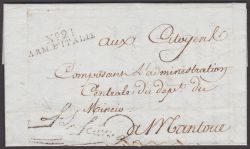 Nº 21
ARM. D'ITALIE
aux Citoyens
Composant L'administration
Centrale du dept. du
Mincio
a Mantoue